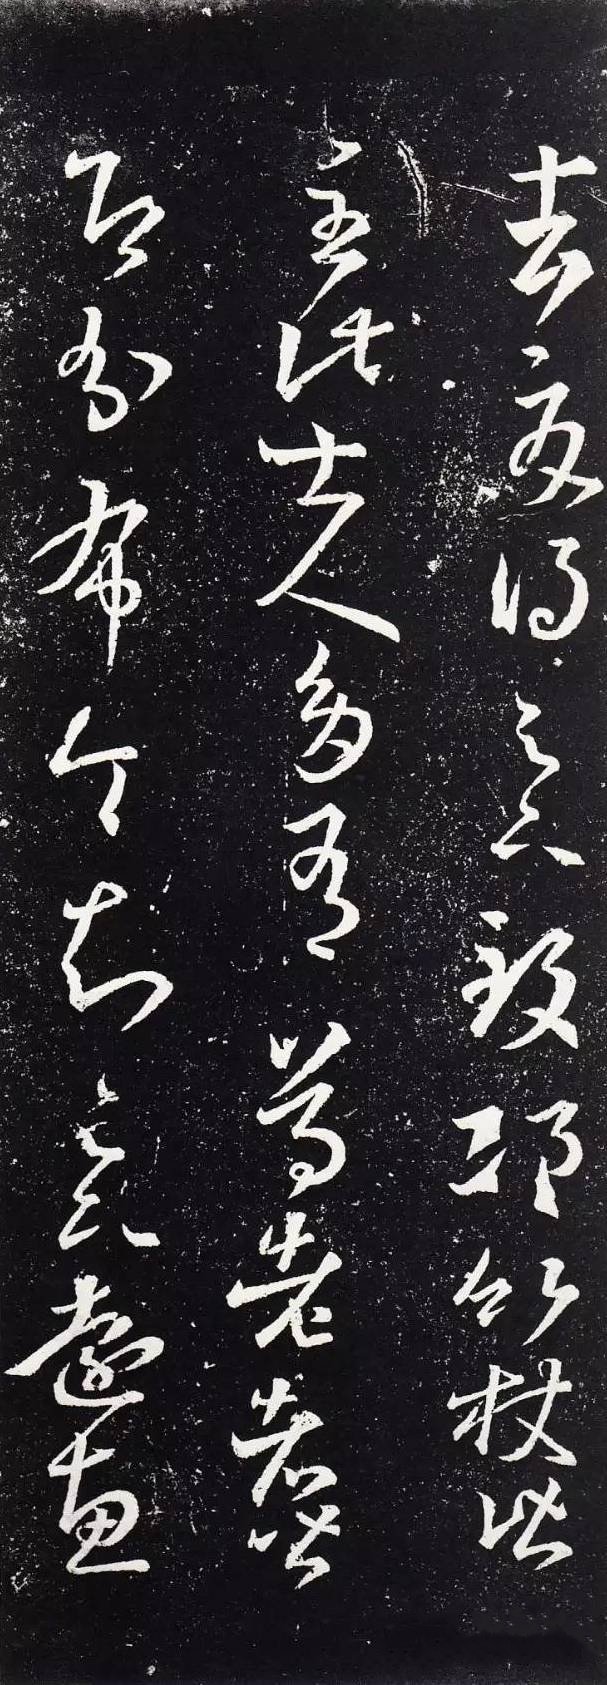 去夏得足下致邛竹杖皆
至此士人多有尊老者皆
即分布令知足下遠惠